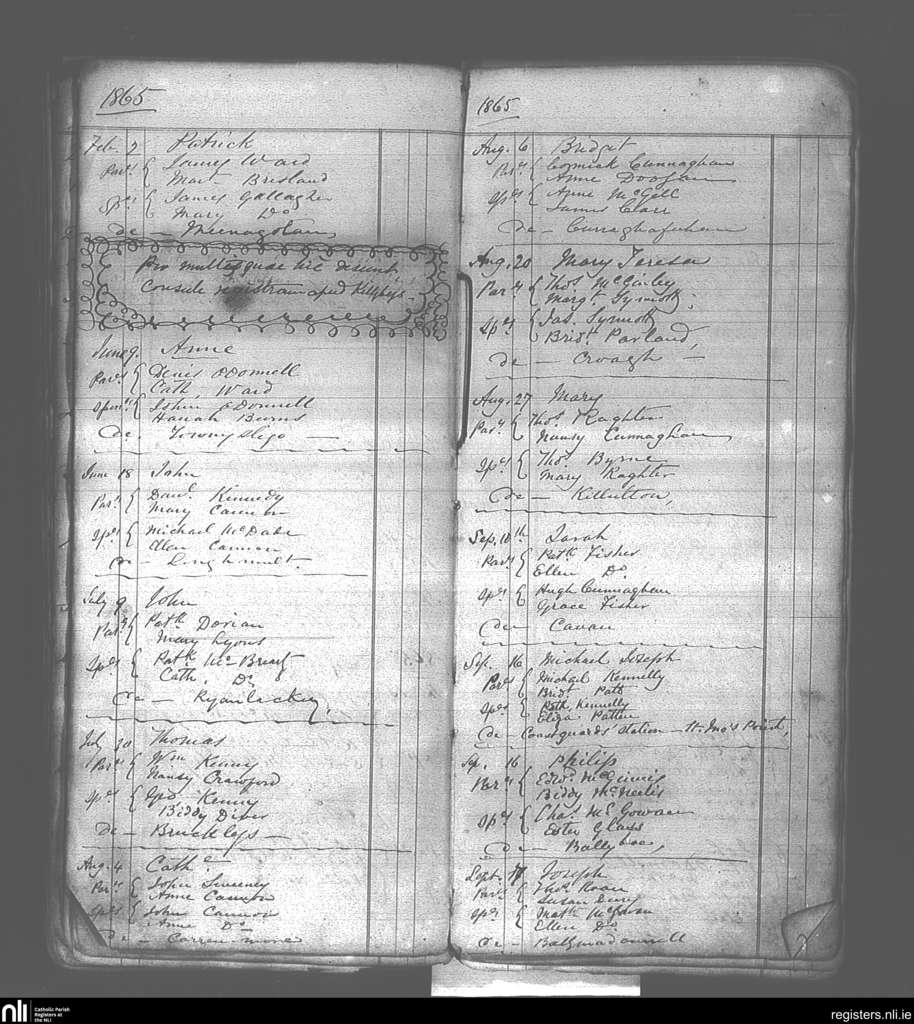 1865
Feb. 2 Patrick
Par.s { James Ward
Mart. Bresland
Sp.s { James Gallagher
Mary Do
de — Meenagolan,
Pro multis quae hic desunt,
Consule registrum apud Killybegs.
June 9. Anne
Par.s { Denis O'Donnell
Cath. Ward
Spon.s { John O'Donnell
Hanah Burns
de. Towny Sligo —
June 18 John
Par.s { Danl. Kennedy
Mary Cannon
Sp.s { Michael McDade
Ellen Cannon
de —
July 9 John
Par.s { Patk Dorian
Mary Lyons
Sp.s { Patk. McBrearty
Cath. Do
de — Ryanlackey,
July 30 Thomas
Par.s { Wm Kenny
Nancy Crawford
Sp.s { Geo. Kenny
Biddy Diver
de — Bruckless —
Aug. 4 Cathe.
Par.s { John Sweeney
Anne Cannon
Sp.s { John Cannon
Anne Do
de — Correnmone
1865
Aug. 6 Bridget
Par.s { Cormick Cunnaghan
Anne Doogan
Sp.s { Anne McGill
James Carr
de —
Aug. 20 Mary Teresa
Par.s { Thos. McGinley
Margt. Symott
Sp.s { Jas. Symott
Bridt. Parland,
de — Croagh —
Aug. 27 Mary
Par.s { Thos. Raghter
Nancy Cunnaghan,
Sp.s { Thos. Byrne
Mary Raghter
de — Killulton,
Sep. 10th Sarah
Par.s { Patk. Fisher
Ellen Do.
Sp.s { Hugh Cunnaghan
Grace Fisher
de Cavan
Sep. 16 Michael Joseph
Par.s { Michael Kennelly
Bridt. Patt
Sp.s { Patk. Kennelly
Eliza Patten
de — Coastguards Station — St. Jno's Point,
Sep. 16 Philip
Par.s { Edwd. McGinnis
Biddy McNeilis
Sp.s { Chas. McGowan
Ester Glass
de — Ballyboe,
Sept. 17 Joseph
Par.s { Thos. Roan
Susan
Sp.s { Matt. McGowan
Ellen Do
de — Ballymadonnell
nli Catholic Parish
Registers at
the NLI
registers.nli.ie